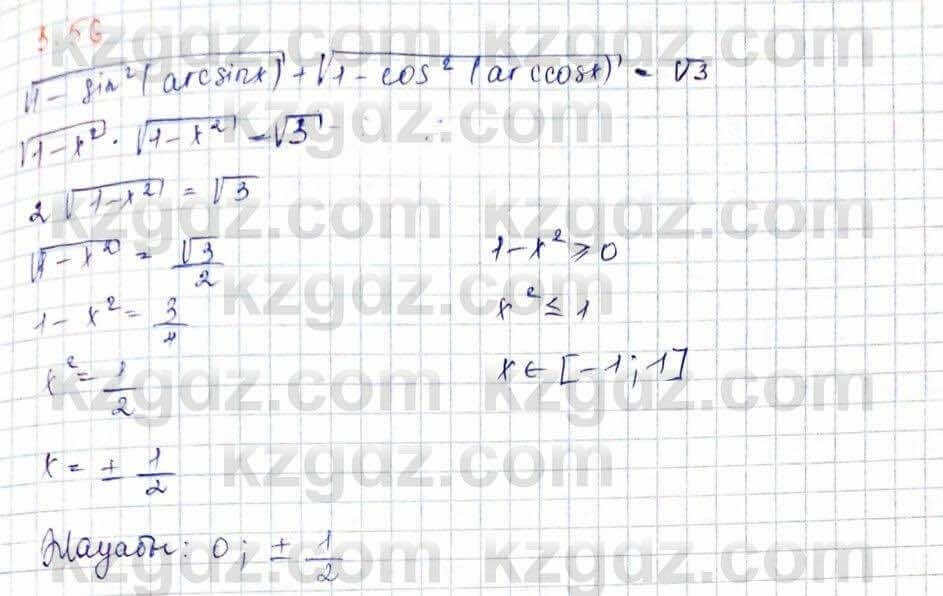 3.56
√1-sin²(arcsinx) + √1-cos²(arccosx) = √3
√1-x² · √1-x² = √3
2√1-x² = √3
√1-x² = √3/2
1-x² ⩾ 0
1-x² = 3/4
x² ≤ 1
x² = 1/2
x ∈ [-1; 1]
x = ± 1/2
Жауабы: 0; ± 1/2
kzgdz.com
kzgdz.com
kzgdz.com kzgdz.com
kzgdz.com kzgdz.com
kzgdz.com kzgdz.com
kzgdz.com kzgdz.com
kzgdz.com kzgdz.com
kzgdz.com kzgdz.com